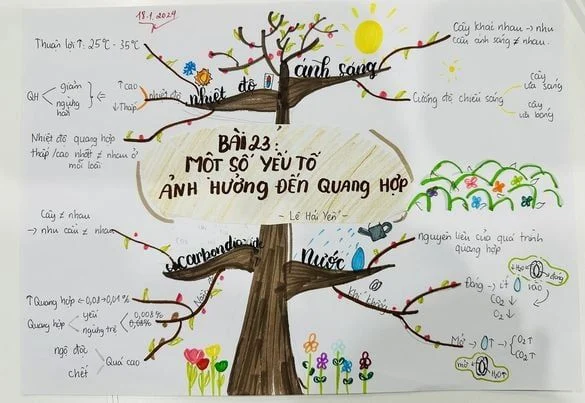 18.1.2024
Thuận lợi: 25°C - 35°C
QH
giảm
ngừng
hẳn
↑ cao
↓ thấp
nhiệt độ
nhiệt độ
Nhiệt độ quang hợp
thấp/cao nhất ≠ nhau ở
mỗi loài
ánh sáng
Cây khác nhau → nhu
cầu ánh sáng ≠ nhau.
Cường độ chiếu sáng
cây
ưa sáng
cây
ưa bóng
BÀI 23:
MỘT SỐ YẾU TỐ
ẢNH HƯỞNG ĐẾN QUANG HỢP
- Lê Hải Yến -
carbondioxide
Cây ≠ nhau
→ nhu cầu ≠ nhau
↑ Quang hợp ← 0,03 → 0,01%
Quang hợp
yếu
ngừng trệ
0,008%
0,03%
ngộ độc
chết
Quá cao
Nước
nguyên liệu của quá trình
quang hợp
Khí khổng
Đóng → ít
vào
CO₂ ↓
O₂ ↓
↓H₂O
đóng
Mở → ↑ →
O₂↑
CO₂↑
mở
H₂O↑